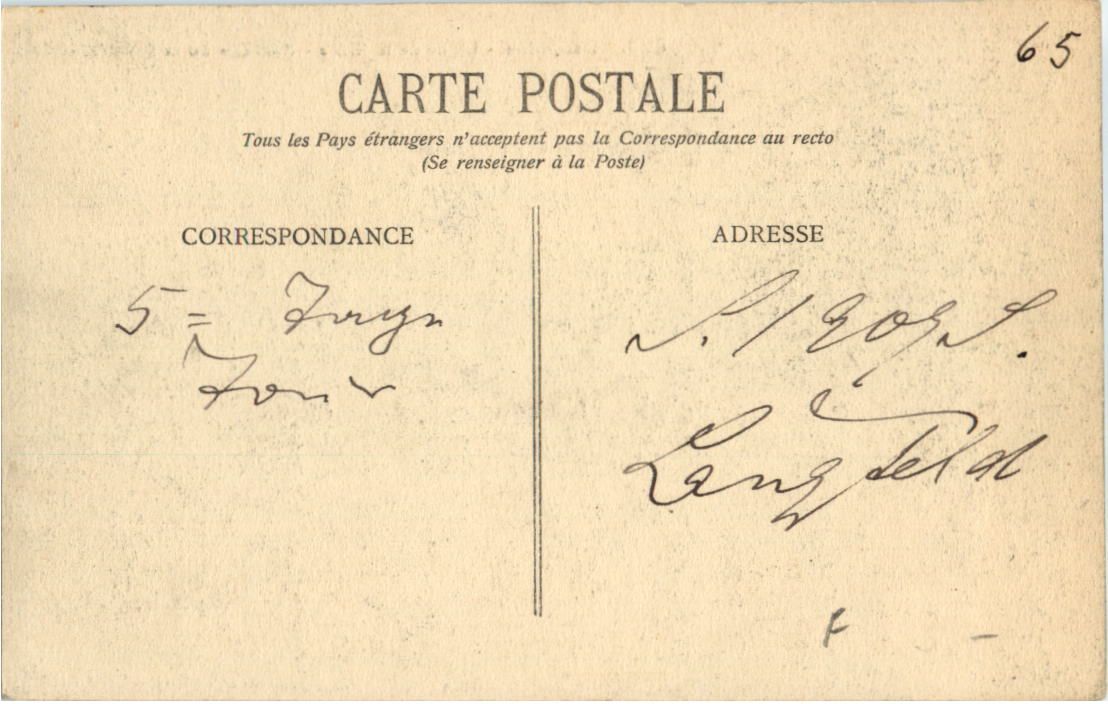 65
CARTE POSTALE
Tous les Pays étrangers n'acceptent pas la Correspondance au recto
(Se renseigner à la Poste)
CORRESPONDANCE
ADRESSE
5 =
Langfeld
F -